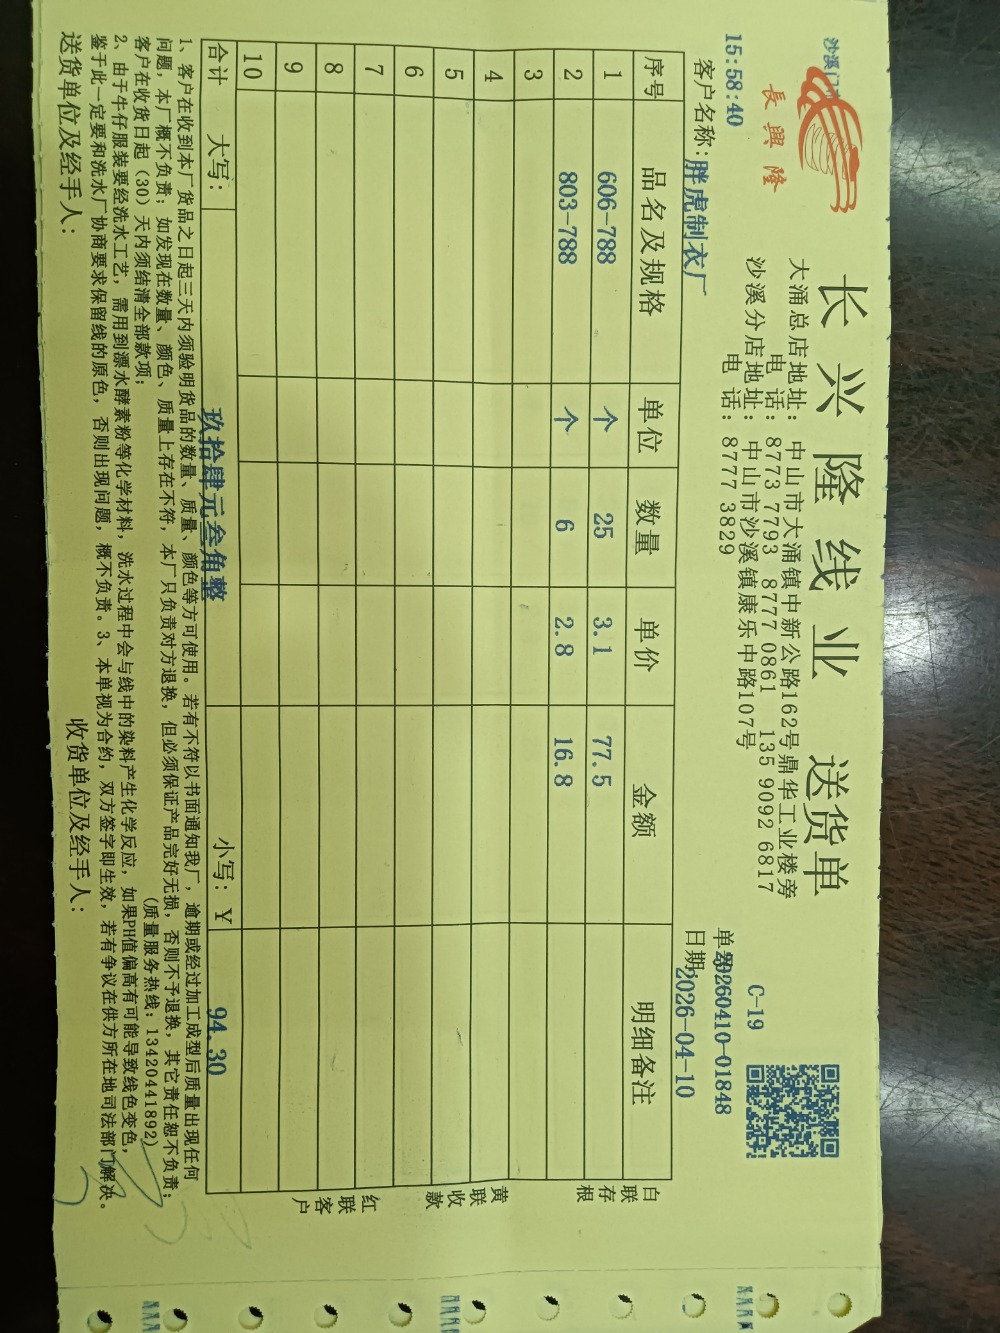 沙溪门
長興隆
长兴隆线业 送货单
大涌总店地址: 中山市大涌镇中新公路162号鼎华工业楼旁
电 话: 8773 7793 8777 0861 135 9092 6817
沙溪分店地址: 中山市沙溪镇康乐中路107号
电 话: 8777 3829
C-19
15:58:40
单号:20260410-01848
客户名称: 胖虎制衣厂
日期:2026-04-10
序号 品名及规格 单位 数量 单价 金额 明细备注
1 606-788 个 25 3.1 77.5
2 803-788 个 6 2.8 16.8
3
4
5
6
7
8
9
10
合计 大写: 玖拾肆元叁角整 小写: ¥ 94.30
白联存根
黄联收款
红联客户
1、客户在收到本厂货品之日起三天内须验明货品的数量、质量、颜色等方可使用。若有不符以书面通知我厂，逾期或经过加工成型后质量出现任何
问题，本厂概不负责；如发现在数量、颜色、质量上存在不符，本厂只负责对方退换，但必须保证产品完好无损，否则不予退换，其它责任恕不负责；
客户在收货日起（30）天内须结清全部款项； (质量服务热线: 13420441892)
2、由于牛仔服装要经洗水工艺，需用到漂水酵素粉等化学材料，洗水过程中会与线中的染料产生化学反应，如果PH值偏高有可能导致线色变色，
鉴于此一定要和洗水厂协商要求保留线的原色，否则出现问题，概不负责。3、本单视为合约，双方签字即生效，若有争议在供方所在地司法部门解决。
送货单位及经手人: 收货单位及经手人: